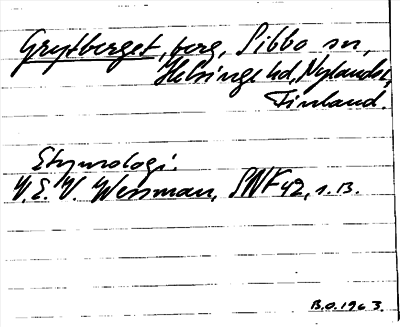 Grytberget, berg, Sibbo sn,
Helsinge hd, Nylands l,
Finland.
Etymologi.
V. E. V. Wessman, SNF 42, s. 13.
B.O. 1963.